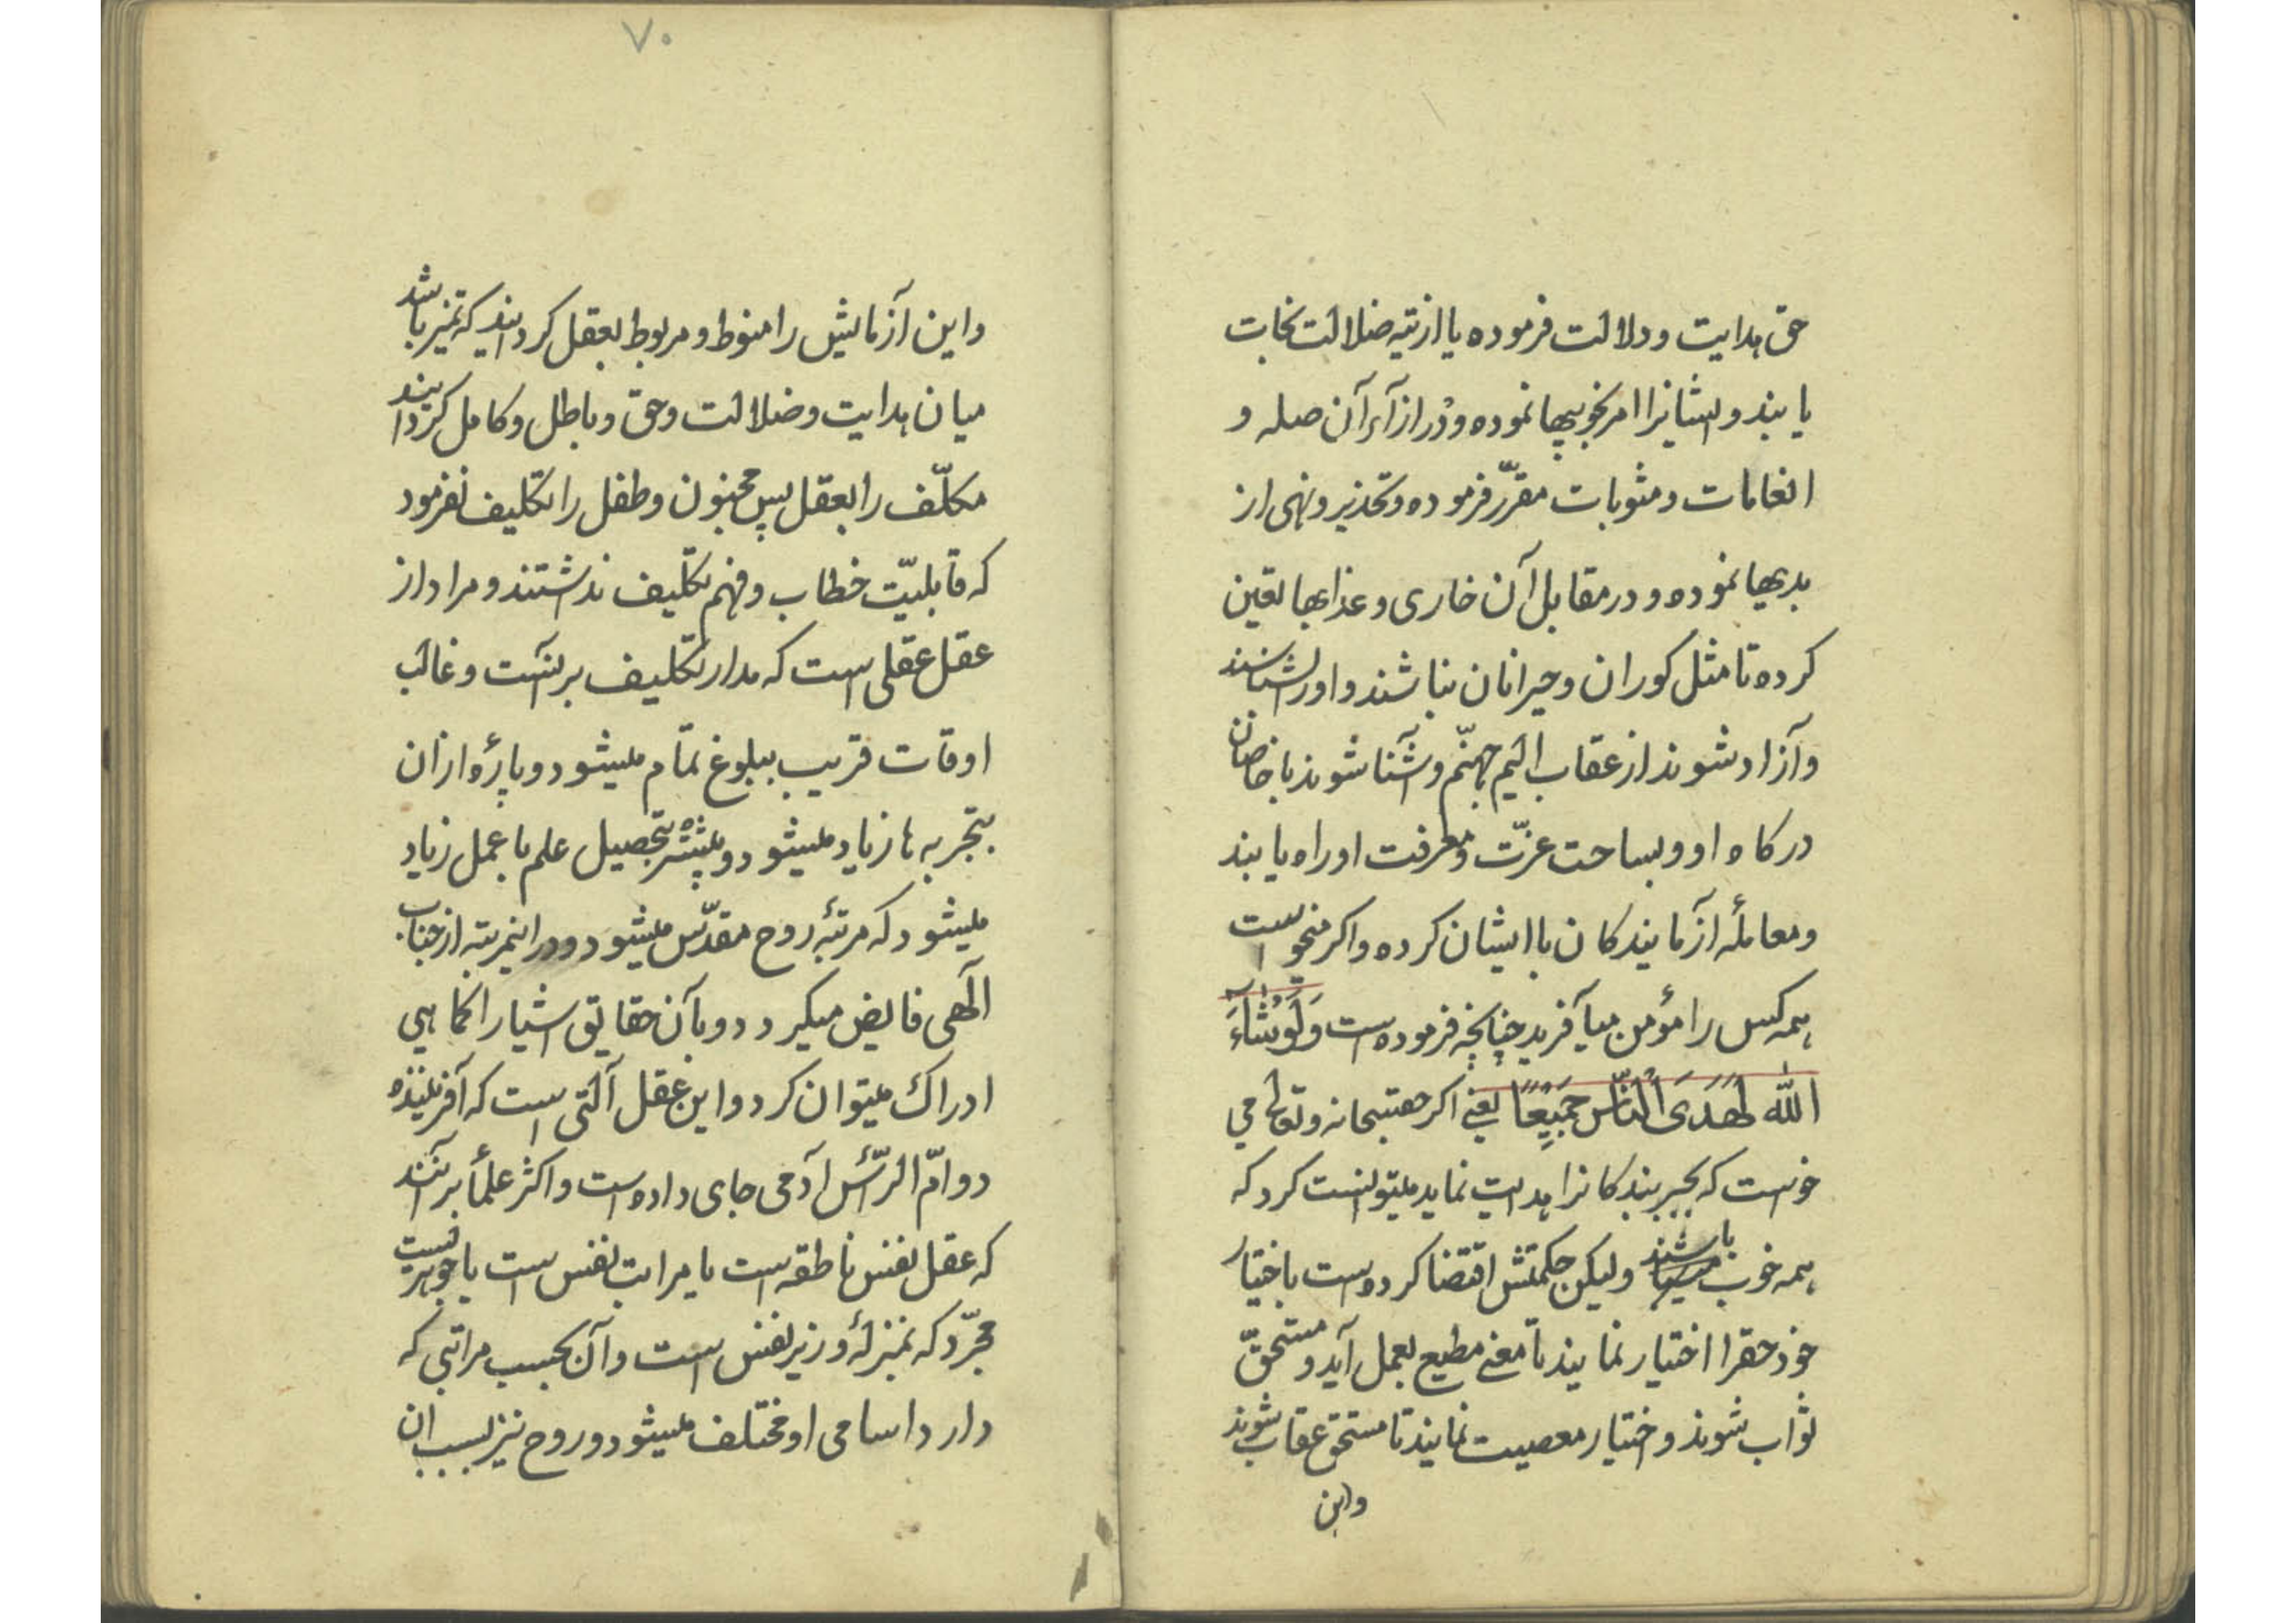 حق هدایت و دلالت فرموده یا از تیه ضلالت نجات
یابند و ایشانرا امر بخوبیها نموده و در ازآء آن صله و
انعامات و مثوبات مقرّر فرموده و تحذیر و نهی از
بدیها نموده و در مقابل آن خاری و عذابها تعین
کرده تا مثل کوران و حیرانان نباشند و اورا بشناسند
و آزاد شوند از عقاب الیم جهنّم و آشنا شوند با خاصان
درکاه او و بساحت عزّت و معرفت او راه یابند
و معاملۀ آزمایندکان با ایشان کرده و اکر میخواست
همه کس را مؤمن میآفرید چنانچه فرموده است وَلَوْ شَآءَ
اللّٰه لَهَدَى الْنّاس جَمیٖعًا یعنے اکر حقتبحانه و تعالی می
خواست که بجبر بندکانرا هدایت نماید میتوانست کرد که
همه خوب باشند ولیکن حکمتش اقتضا کرده است باختیار
خود حقرا اختیار نمایند تا معنے مطیع بعمل آید و مستحقّ
ثواب شوند و اختیار معصیت نمایند تا مستحق عقاب شوند
واین
۷۰
و این آزمایش را منوط و مربوط بعقل کردانید که تمیز باشد
میان هدایت و ضلالت و حق و باطل و کامل کردانید
مکلّف را بعقل پس مجنون و طفل را تکلیف نفرمود
که قابلیّت خطاب و فهم تکلیف نداشتند و مراد از
عقل عقلی است که مدار تکلیف بر آنست و غالب
اوقات قریب ببلوغ تمام میشود و پارۀ از ان
بتجربه ها زیاد میشود و بیشتر بتحصیل علم با عمل زیاد
میشود که مرتبۀ روح مقدّس میشود و در اینمرتبه از جناب
الٓهی فایض میکیردد و بآن حقایق اشیا را کماهی
ادراک میتوان کرد و این عقل آلتی است که آفریننده
در امّ الرّأس آدمی جای داده است و اکثر علمأ بر آنند
که عقل نفس ناطقه است یا مراتب نفس است یا جوهریست
مجرّد که بمنزلۀ وزیر نفس است و آن بحسب مراتبی که
دارد اسامی او مختلف میشود و روح نیز بسبب ان